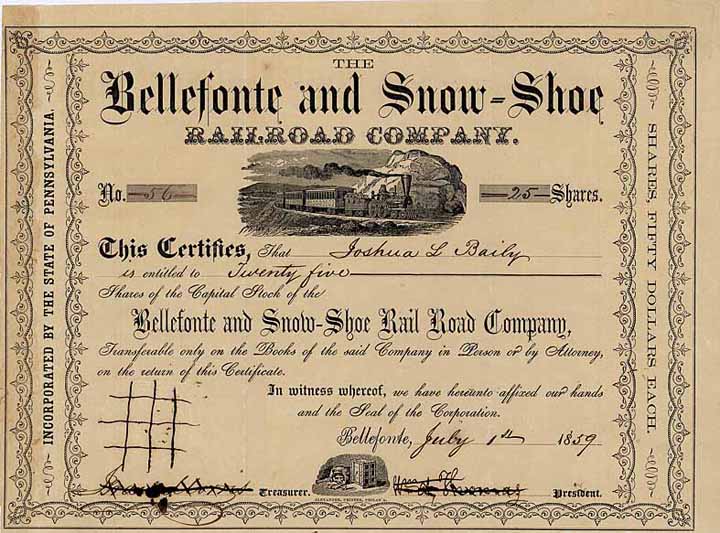 THE
Bellefonte and Snow-Shoe
RAILROAD COMPANY.
No. 56
25 Shares.
This Certifies, That Joshua L Baily
is entitled to Twenty five
Shares of the Capital Stock of the
Bellefonte and Snow-Shoe Rail Road Company,
Transferable only on the Books of the said Company in Person or by Attorney,
on the return of this Certificate.
In witness whereof, we have hereunto affixed our hands
and the Seal of the Corporation.
Bellefonte, July 1st 1859
Treasurer.
President.
ALEXANDER, PRINTER, PHILAD'A.
INCORPORATED BY THE STATE OF PENNSYLVANIA.
SHARES FIFTY DOLLARS EACH.